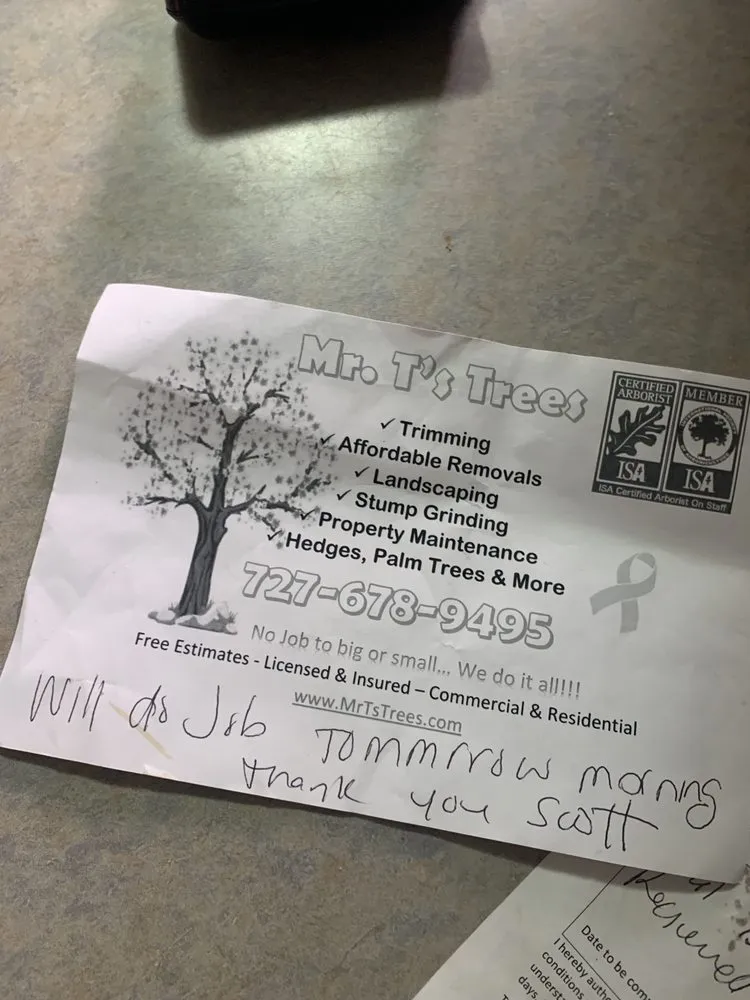 Mr. T's Trees
CERTIFIED ARBORIST
ISA
MEMBER
ISA
ISA Certified Arborist On Staff
✓ Trimming
✓ Affordable Removals
✓ Landscaping
✓ Stump Grinding
✓ Property Maintenance
✓ Hedges, Palm Trees & More
727-678-9495
No Job to big or small... We do it all!!!
Free Estimates - Licensed & Insured – Commercial & Residential
www.MrTsTrees.com
Will do Job Tommrrow morning
thank you Scott
Date to be com
I hereby autho
conditions
underst
days